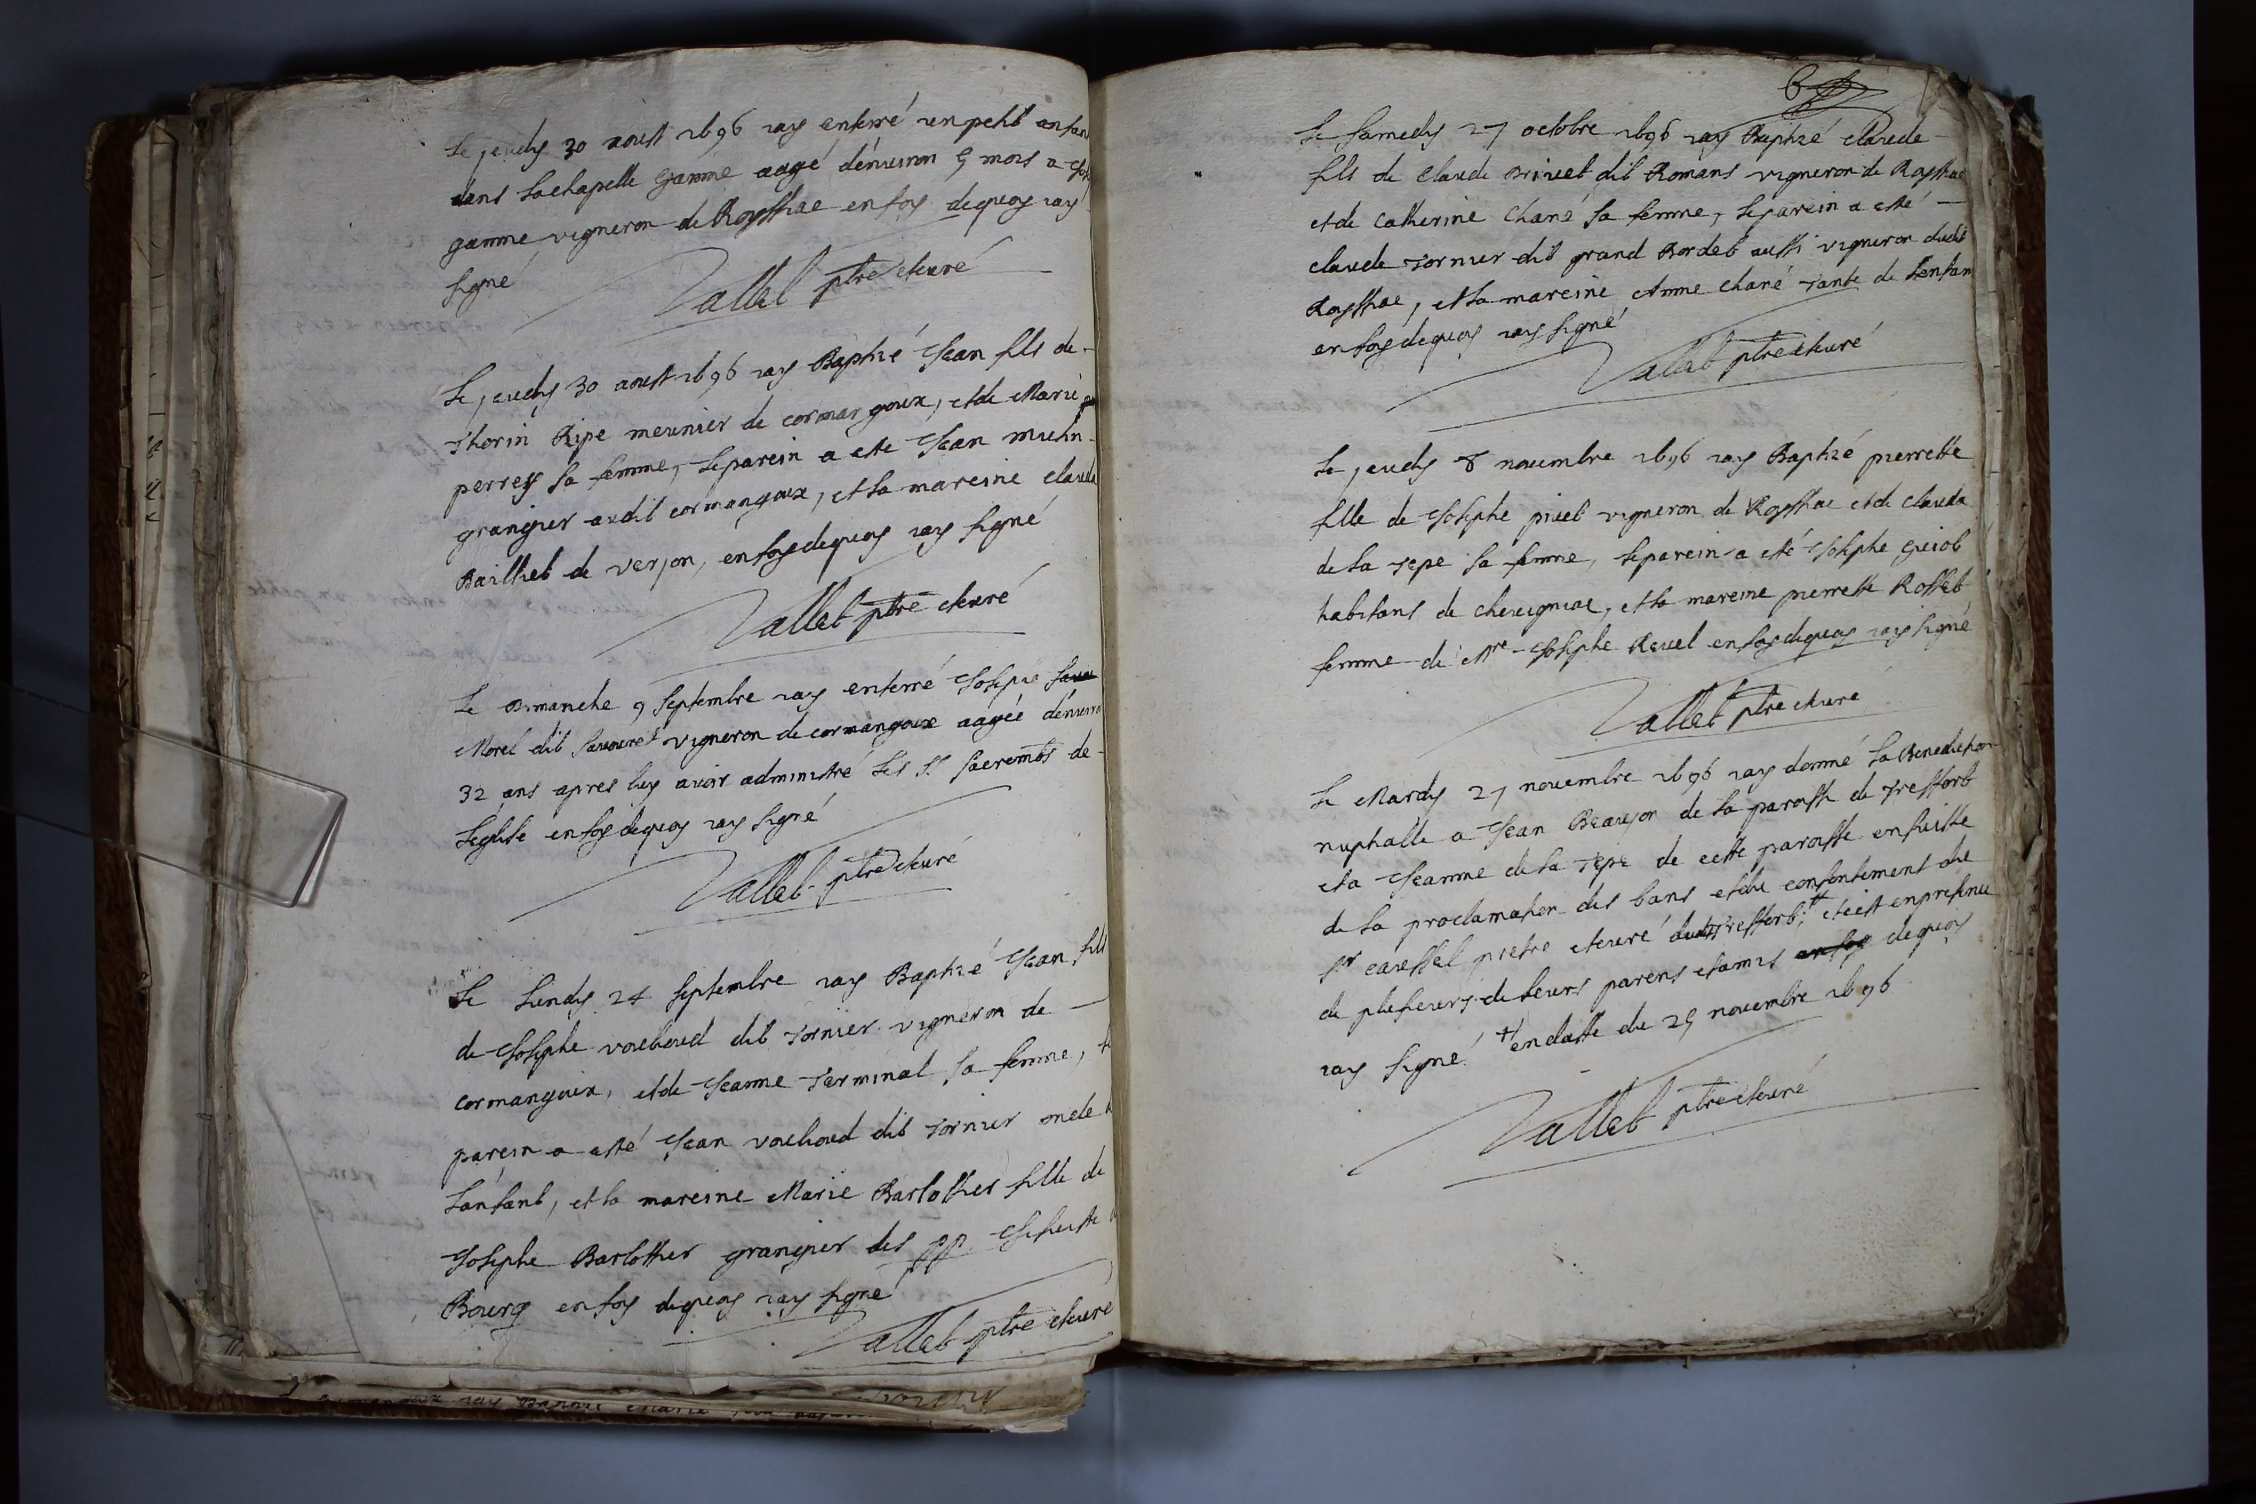 Le jeudy 30 aoust 1696 jay enterré un petit enfan
dans la chapelle gamme aagé d'environ 5 mois a
gamme vigneron de Rosshae en foy dequoy jay
signé
Vallet ptre et curé
Le jeudy 30 aoust 1696 jay Baptizé Jean fils de
Thorin Ripe meunier de cormangoux, et de Marie
perrey sa femme, le parein a esté Jean
grangier audit cormangoux, et la mareine clauda
Bailliet de verjon, en foy dequoy jay signé
Vallet ptre et curé
Le Dimanche 9 Septembre jay enterré Josephe
Morel dit Savouret vigneron de cormangoux aagée d'enviro
32 ans apres luy avoir administré les Sts Sacremts de
l'eglise en foy dequoy jay signé
Vallet ptre et curé
Le Lundy 24 Septembre jay Baptizé Jean fils
de Josephe vouchoud dit Tornier vigneron de
cormangoux, et de Jeanne Terminal sa femme, le
parein a esté Jean vouchoud dit Tornier oncle
l'enfant, et la mareine Marie Barlothier fille de
Josephe Barlothier grangier des pp. Jesuitte
Bourg en foy dequoy jay signé
Vallet ptre et curé
Le Samedy 27 octobre 1696 jay Baptizé claude
fils de claude Brivet dit Romans vigneron de Rosshae
et de catherine chané sa femme, le parein a esté
claude Tornier dit grand Bordet aussi vigneron dudit
Rosshae, et la mareine Anne chané Tante de l'enfan
en foy dequoy jay signé
Vallet ptre et curé
Le jeudy 8 novembre 1696 jay Baptizé pierrette
fille de Josephe pivet vigneron de Rosshae et de clauda
de la Tepe sa femme, le parein a esté Josephe guiot
habitant de chevigniae, et la mareine pierrette Rosset
femme de Mre Josephe Revel en foy dequoy jay signé
Vallet ptre et curé
Le Mardy 27 novembre 1696 jay donné la Benediction
nuptialle a Jean Beaujon de la paroisse de Treffort
et a Jeanne de la Tepe de cette paroisse en suitte
de la proclamation des bans et du consentement du
Sr caussel pretre et curé dudit Treffort, + et ce en presence
de plusieurs de leurs parens et amis en foy dequoy
jay signé. + en datte du 25 novembre 1696
Vallet ptre et curé